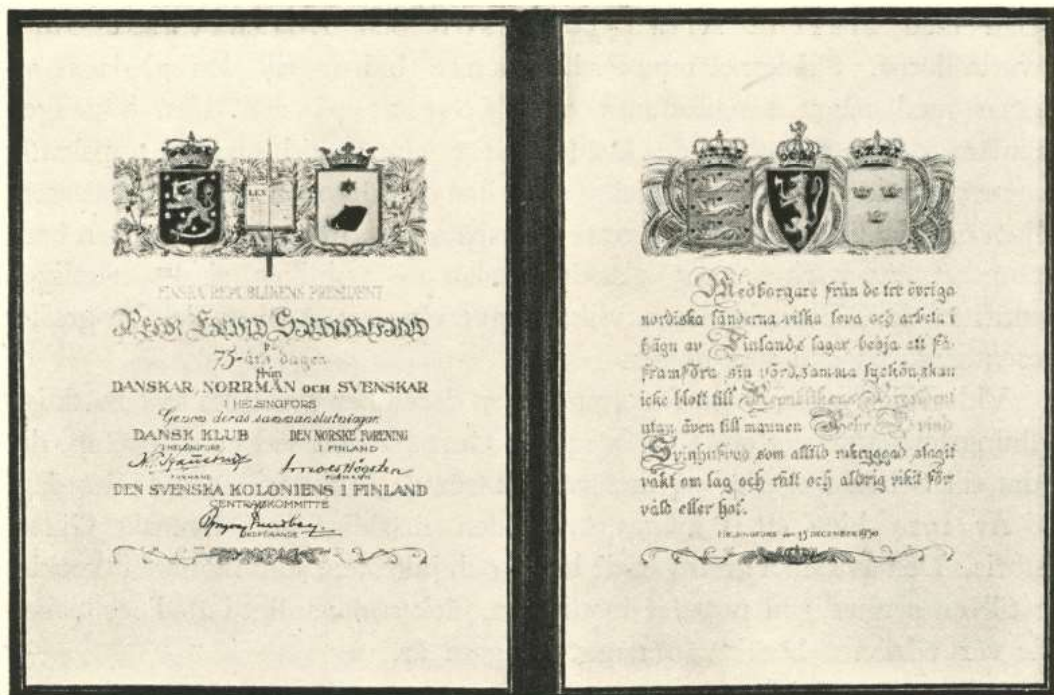 LEX
FINSKA REPUBLIKENS PRESIDENT
PEHR EVIND SVINHUFVUD
på
75-års dagen
från
DANSKAR, NORRMÄN OCH SVENSKAR
I HELSINGFORS
Genom deras sammanslutningar
DANSK KLUB DEN NORSKE FORENING
I HELSINGFORS I FINLAND
FORMAND FORMANN
DEN SVENSKA KOLONIENS I FINLAND
CENTRALKOMMITTÉ
ORDFÖRANDE
Medborgare från de tre övriga
nordiska länderna vilka leva och arbeta i
hägn av Finlands lagar bedja att få
framföra sin vördsamma lyckönskan
icke blott till Republikens President
utan även till mannen Pehr Evind
Svinhufvud som alltid rakryggad slagit
vakt om lag och rätt och aldrig vikit för
våld eller hot.
HELSINGFORS den 15 DECEMBER 1936